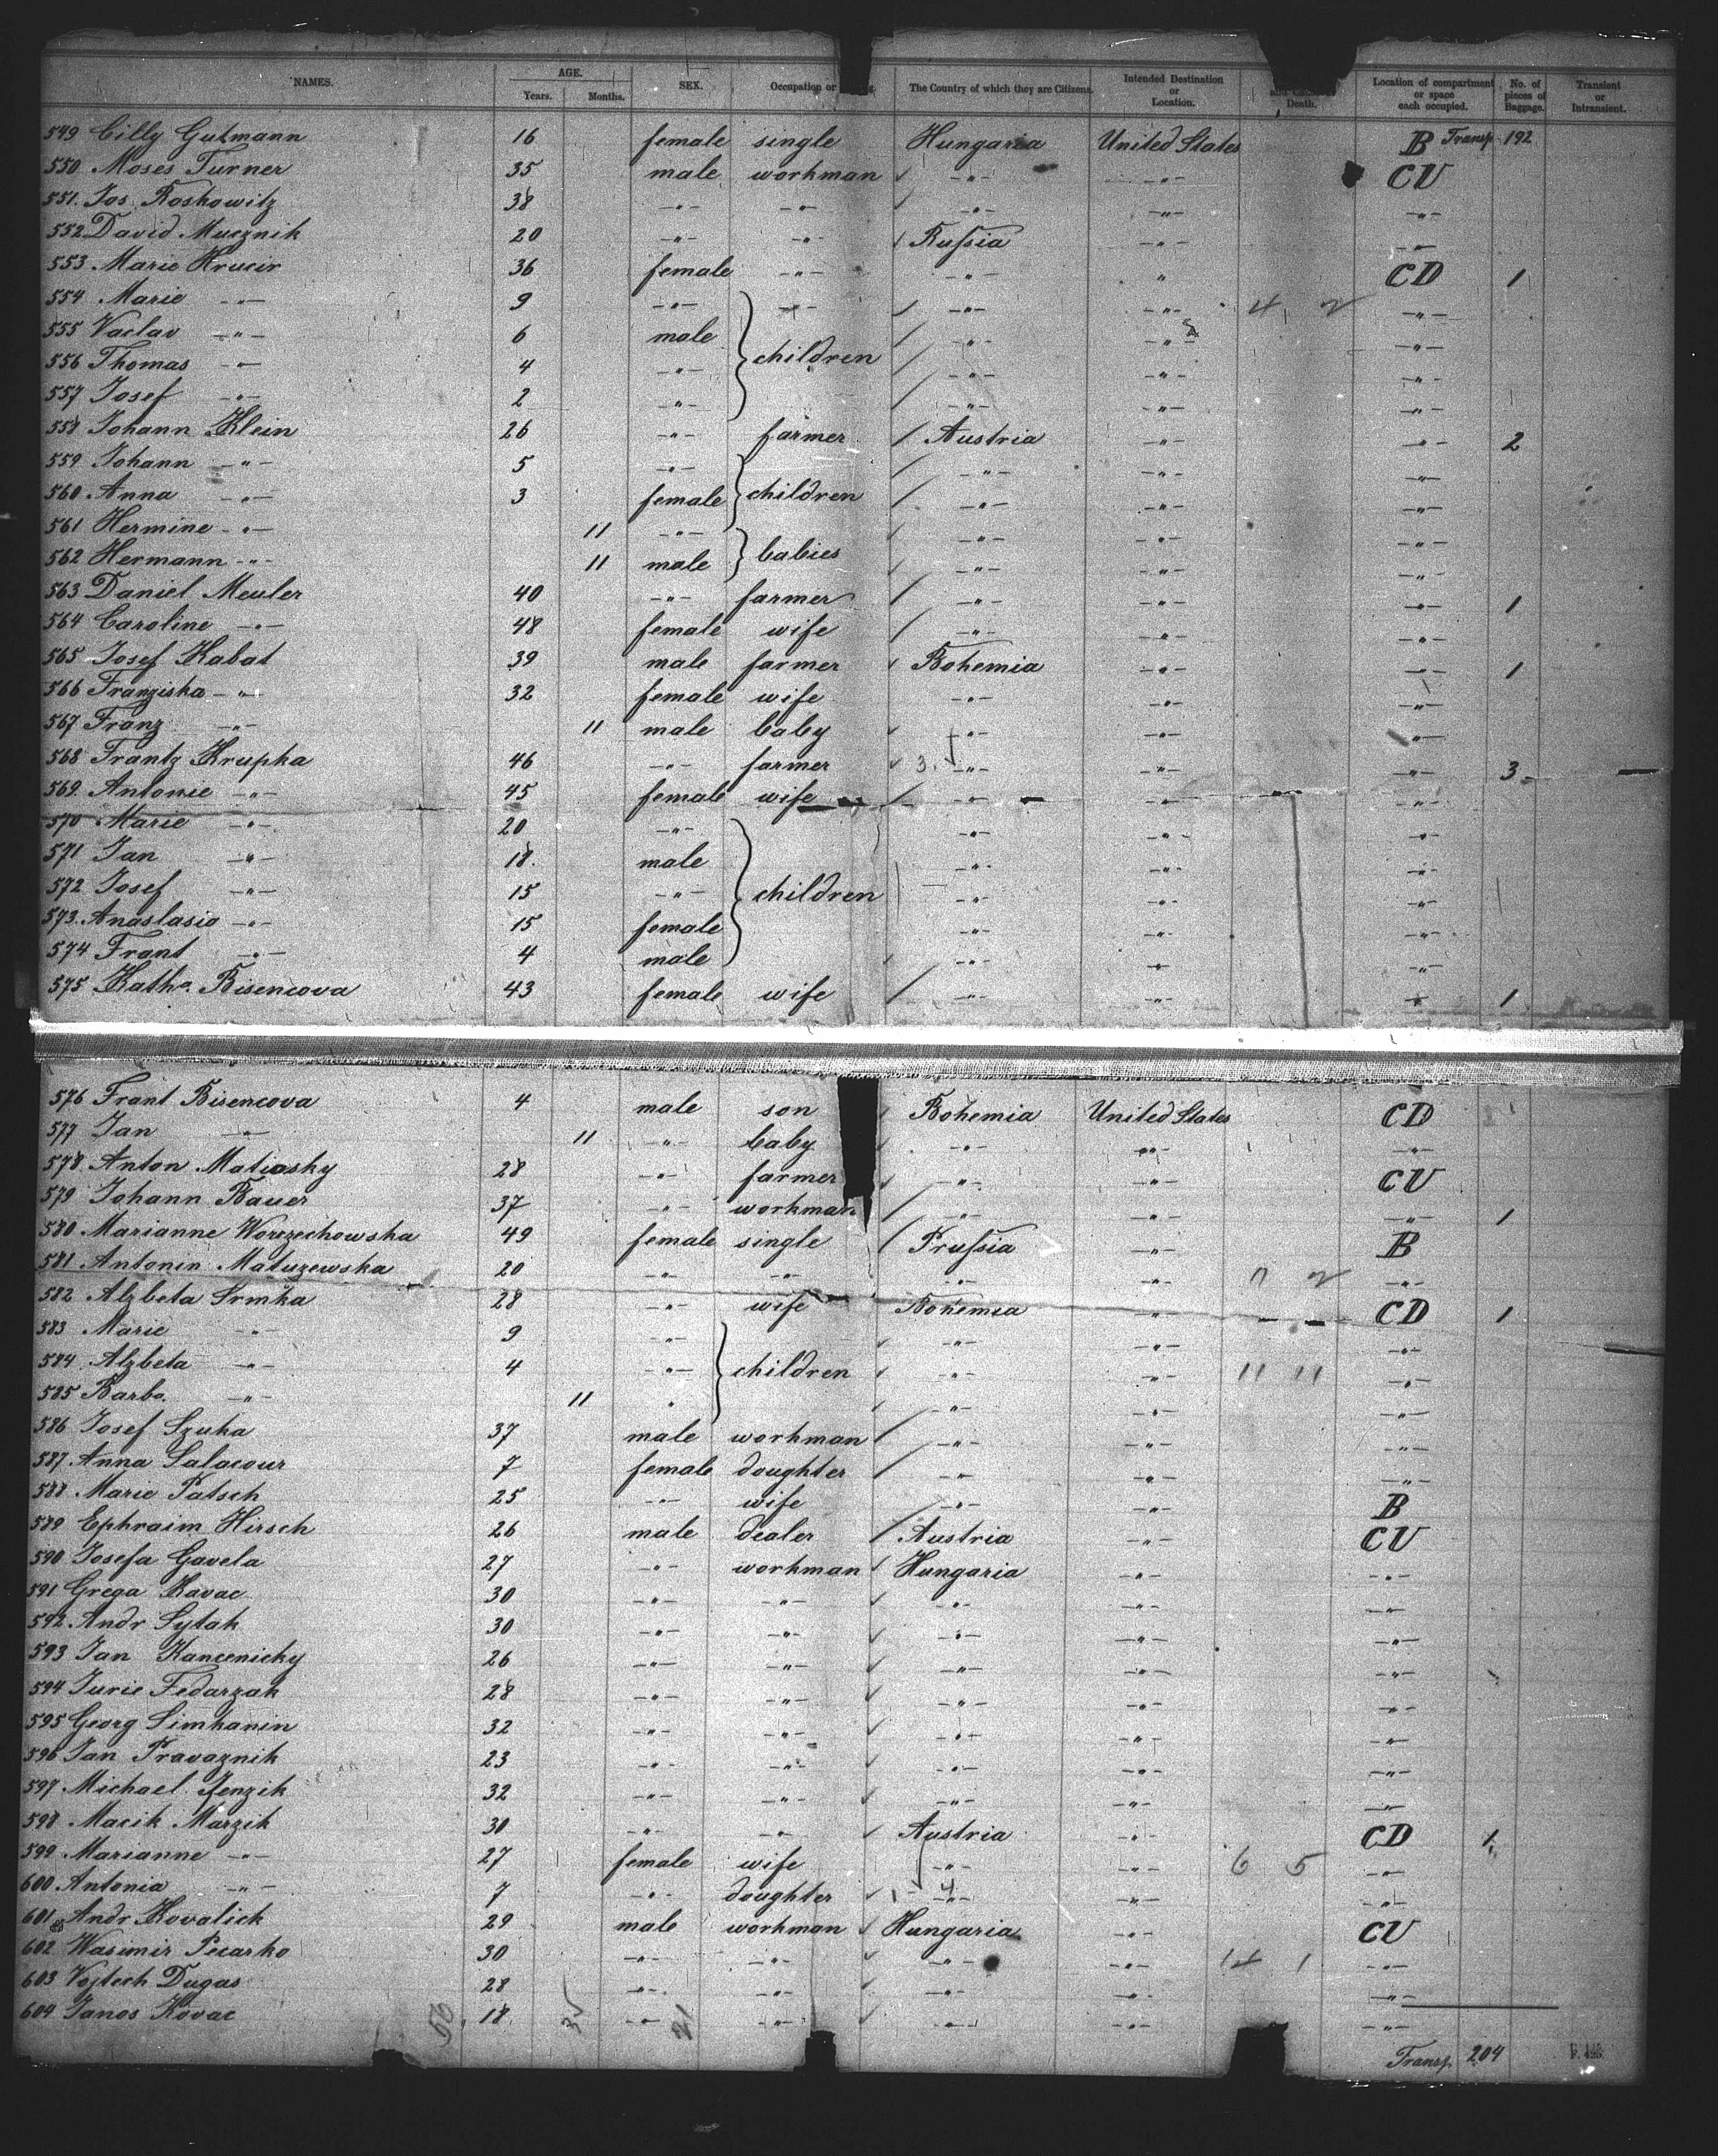 NAMES. AGE. Years. Months. SEX. Occupation or The Country of which they are Citizens. Intended Destination or Location. Death. Location of compartment or space each occupied. No. of pieces of Baggage. Transient or Intransient.
549 Cilly Gutmann 16 female single Hungaria United States B Transp. 192
550 Moses Turner 35 male workman -"- -"- CU
551. Jos. Roskowitz 38 -"- -"- -"- -"- -"-
552 David Mucznik 20 -"- -"- Russia -"- -"-
553 Marie Krucir 36 female -"- -"- " CD 1
554 Marie -"- 9 -"- -"- -"- -"- 4 2 -"-
555 Vaclav -"- 6 male children -"- -"- -"-
556 Thomas -"- 4 -"- -"- -"- -"-
557 Josef -"- 2 -"- -"- -"- -"-
558 Johann Klein 26 -"- farmer Austria -"- -"- 2
559 Johann -"- 5 -"- children -"- -"- -"-
560 Anna -"- 3 female -"- -"- -"-
561 Hermine -"- 11 -"- babies -"- -"- -"-
562 Hermann -"- 11 male -"- -"- -"-
563 Daniel Meuler 40 -"- farmer -"- -"- -"- 1
564 Caroline -"- 48 female wife -"- -"- -"-
565 Josef Kabat 39 male farmer Bohemia -"- -"- 1
566 Franziska -"- 32 female wife -"- -"- -"-
567 Franz -"- 11 male baby -"- -"- -"-
568 Frantz Krupka 46 -"- farmer 3. -"- -"- -"- 3
569. Antonie -"- 45 female wife -"- -"- -"-
570 Marie -"- 20 -"- children -"- -"- -"-
571 Jan -"- 18. male -"- -"- -"-
572 Josef -"- 15 -"- -"- -"- -"-
573. Anastasia -"- 15 female -"- -"- -"-
574 Frant -"- 4 male -"- -"- -"-
575 Katha. Bisencova 43 female wife -"- -"- -"- 1
576 Frant Bisencova 4 male son Bohemia United States CD
577 Jan -"- 11 -"- baby -"- -"- -"-
578. Anton Matiosky 28 -"- farmer -"- -"- CU
579 Johann Bauer 37 -"- workman -"- -"- -"- 1
580 Marianne Worzechowska 49 female single Prussia -"- B
581 Antonin Matuzewska 20 -"- -"- -"- -"- -"-
582 Alzbeta Srmka 28 -"- wife Bohemia -"- CD 1
583 Marie -"- 9 -"- children -"- -"- -"-
584 Alzbeta -"- 4 -"- -"- -"- 11 11 -"-
585 Barba. -"- 11 " -"- -"- -"-
586 Josef Szuka 37 male workman -"- -"- -"-
587. Anna Salacour 7 female doughter -"- -"- -"-
588 Marie Patsch 25 -"- wife -"- -"- B
589 Ephraim Hirsch 26 male dealer Austria -"- CU
590 Josefa Gavela 27 -"- workman Hungaria -"- -"-
591 Grega Kavac 30 -"- -"- -"- -"- -"-
592. Andr Sytak 30 -"- -"- -"- -"- -"-
593 Jan Kancenicky 26 -"- -"- -"- -"- -"-
594 Jurie Fedarzak 28 -"- -"- -"- -"- -"-
595 Georg Simhanin 32 -"- -"- -"- -"- -"-
596 Jan Pravaznik 23 -"- -"- -"- -"- -"-
597 Michael Jenzik 32 -"- -"- -"- -"- -"-
598 Macik Marzik 30 -"- -"- Austria -"- CD 1
599 Marianne -"- 27 female wife -"- -"- 6 5 -"-
600 Antonia -"- 7 -"- doughter 1 - 4 -"- -"- -"-
601 Andr Kovalick 29 male workman Hungaria -"- CU
602 Wasimir Pecarko 30 -"- -"- -"- -"- 14 1 -"-
603 Vojtech Dugas 28 -"- -"- -"- -"- -"-
604 Janos Kovac 18. -"- -"- -"- -"- -"-
Transp. 204